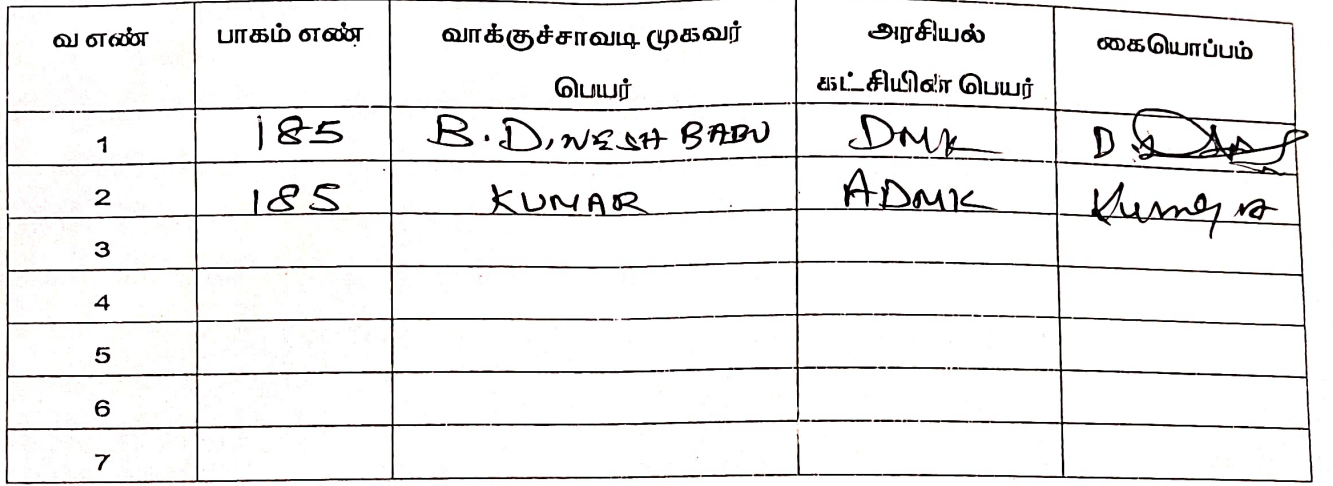 வ எண் பாகம் எண் வாக்குச்சாவடி முகவர் பெயர் அரசியல் கட்சியின் பெயர் கையொப்பம்
1 185 B. DINESH BABU DMK
2 185 KUMAR ADMK Kumar
3
4
5
6
7